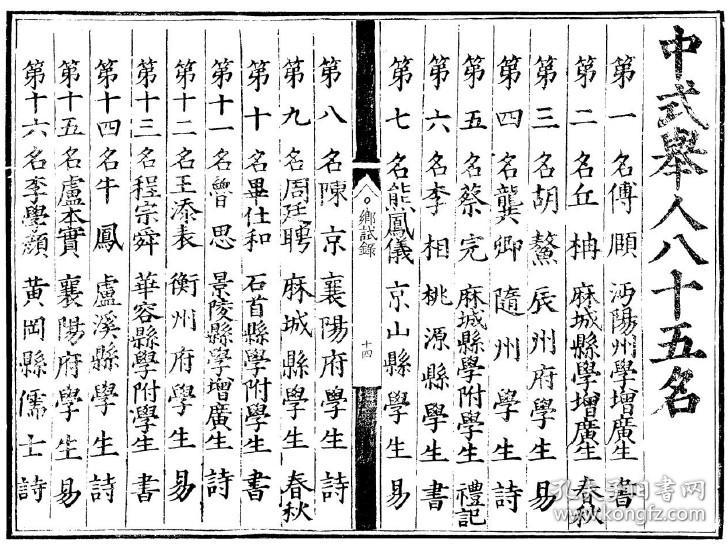 中式舉人八十五名
第一名傅頤 沔陽州學增廣生 書
第二名丘柟 麻城縣學增廣生 春秋
第三名胡鰲 辰州府學生 易
第四名龔卿 隨州學生 詩
第五名蔡完 麻城縣學附學生 禮記
第六名李相 桃源縣學生 書
第七名熊鳳儀 京山縣學生 易
鄉試錄
十四
第八名陳京 襄陽府學生 詩
第九名周廷聘 麻城縣學生 春秋
第十名畢仕和 石首縣學附學生 書
第十一名曾思 景陵縣學增廣生 詩
第十二名王添表 衡州府學生 易
第十三名程宗舜 華容縣學附學生 書
第十四名牛鳳 盧溪縣學生 詩
第十五名盧本實 襄陽府學生 易
第十六名李學顏 黃岡縣儒士 詩
孔夫子旧书网
www.kongfz.com